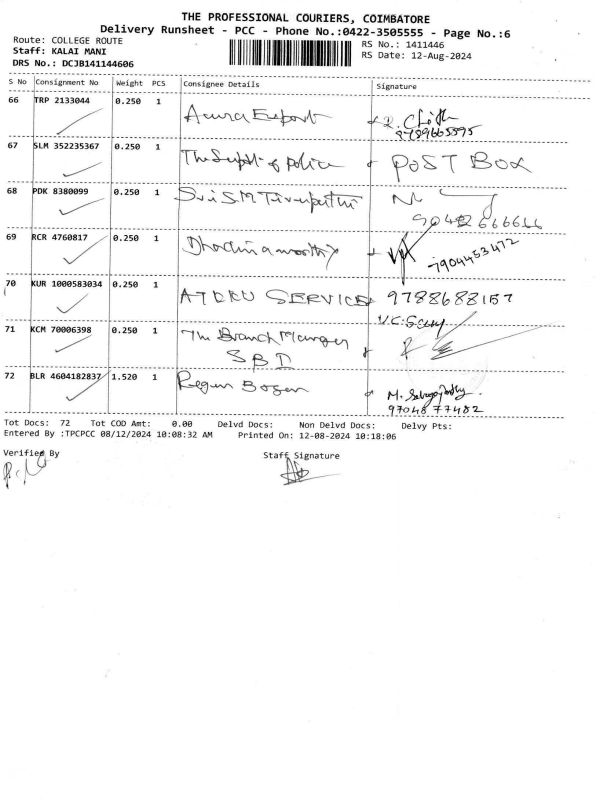 THE PROFESSIONAL COURIERS, COIMBATORE
Delivery Runsheet - PCC - Phone No.:0422-3505555 - Page No.:6
Route: COLLEGE ROUTE RS No.: 1411446
Staff: KALAI MANI RS Date: 12-Aug-2024
DRS No.: DCJB141144606
S No Consignment No Weight PCS Consignee Details Signature
66 TRP 2133044 0.250 1 Export
9789665595
67 SLM 352235367 0.250 1 The Supdt of police POST BOX
68 PDK 8380099 0.250 1 Sri S.M
69 RCR 4760817 0.250 1
7904453472
70 KUR 1000583034 0.250 1 SERVICE 9788688157
71 KCM 70006398 0.250 1 The Branch Manager
72 BLR 4604182837 1.520 1 M.
9704877482
Tot Docs: 72 Tot COD Amt: 0.00 Delvd Docs: Non Delvd Docs: Delvy Pts:
Entered By :TPCPCC 08/12/2024 10:08:32 AM Printed On: 12-08-2024 10:18:06
Verified By Staff Signature